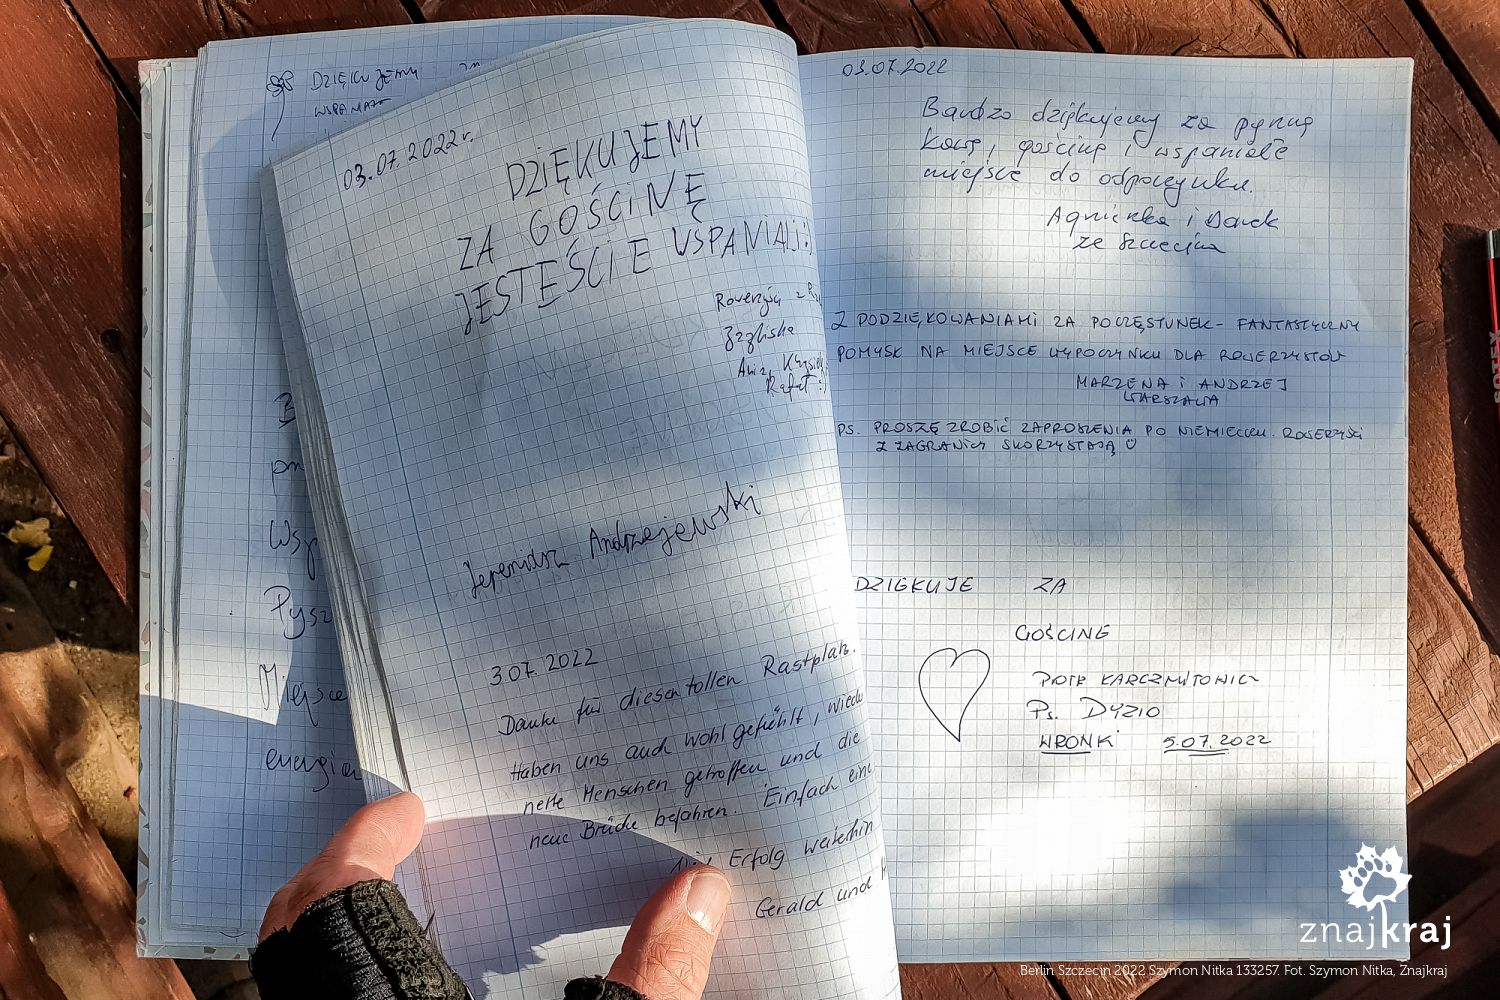 DZIĘKUJEMY
03.07.2022 r.
DZIĘKUJEMY
ZA GOŚCINĘ
JESTEŚCIE WSPANIALI!
Rowerzyści z
Rafał :)
Andrzejewski
3.07.2022
Danke für diesen tollen Rastplatz.
Haben uns auch wohl gefühlt, wieder
nette Menschen getroffen und die
neue Brücke befahren. Einfach eine
Erfolg weiterhin
Gerald und
Wsp
Pysz
Miejsce
energi
03.07.2022
Bardzo dziękujemy za pyszną
kawę, gościnę i wspaniałe
miejsce do odpoczynku.
Agnieszka i Darek
ze Szczecina
Z PODZIĘKOWANIAMI ZA POCZĘSTUNEK - FANTASTYCZNY
POMYSŁ NA MIEJSCE WYPOCZYNKU DLA ROWERZYSTÓW
MARZENA i ANDRZEJ
WARSZAWA
PS. PROSZĘ ZROBIĆ ZAPROSZENIA PO NIEMIECKU. ROWERZYŚCI
Z ZAGRANICY SKORZYSTAJĄ
DZIEKUJE ZA
GOŚCINE
PIOTR
Ps. DYZIO
WRONKI 5.07.2022
znajkraj
Berlin Szczecin 2022 Szymon Nitka 133257. Fot. Szymon Nitka, Znajkraj